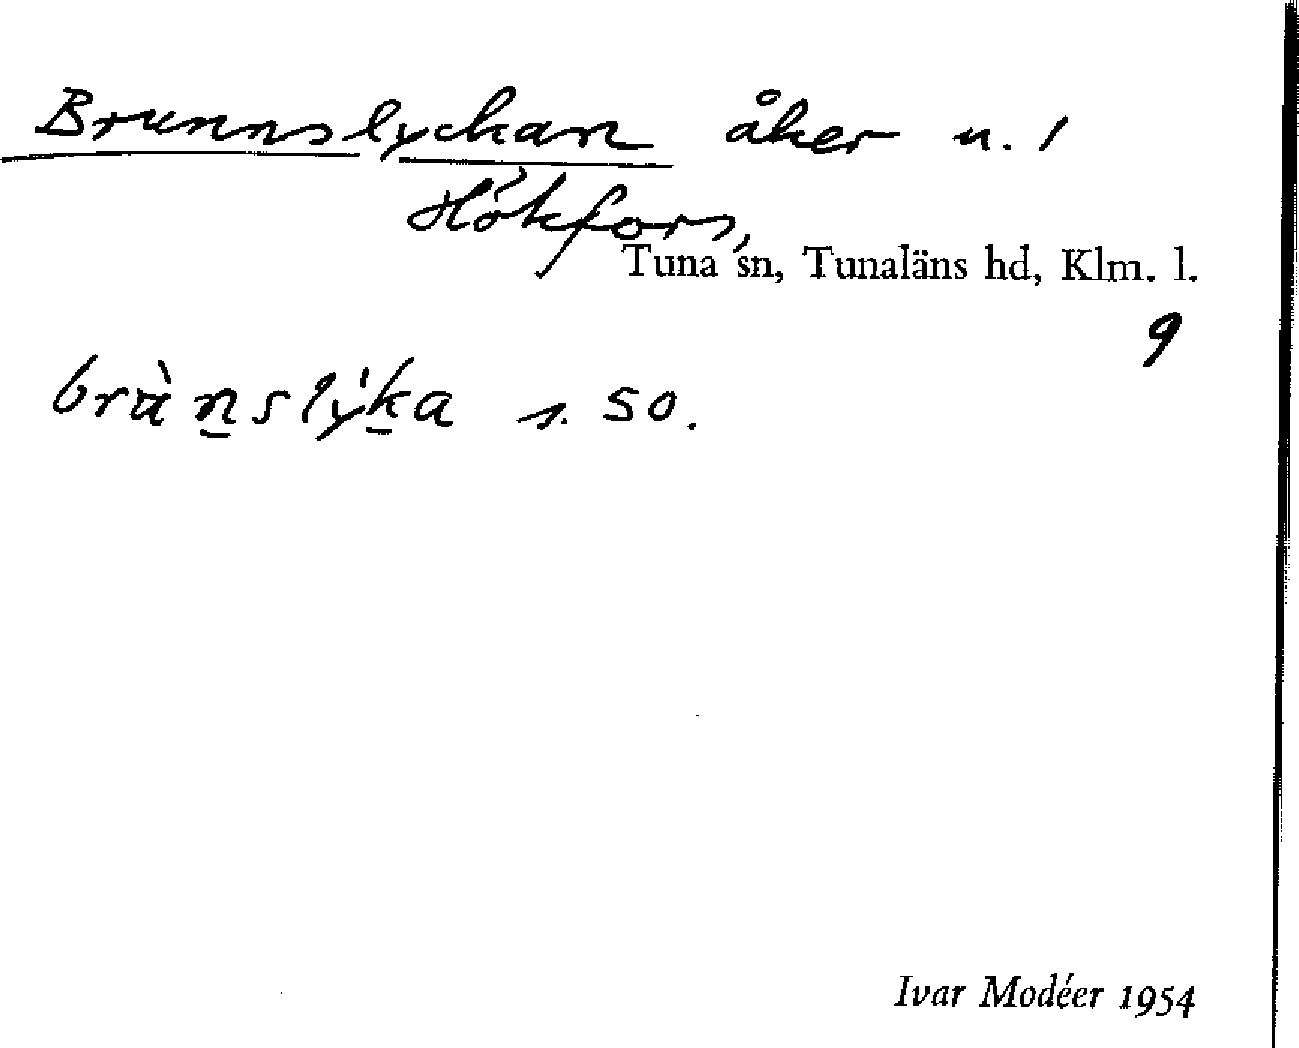 Brunnslyckan åker u. 1
Hökfors,
Tuna sn, Tunaläns hd, Klm. l.
9
brùn̲slýk̲a s. so.
Ivar Modéer 1954